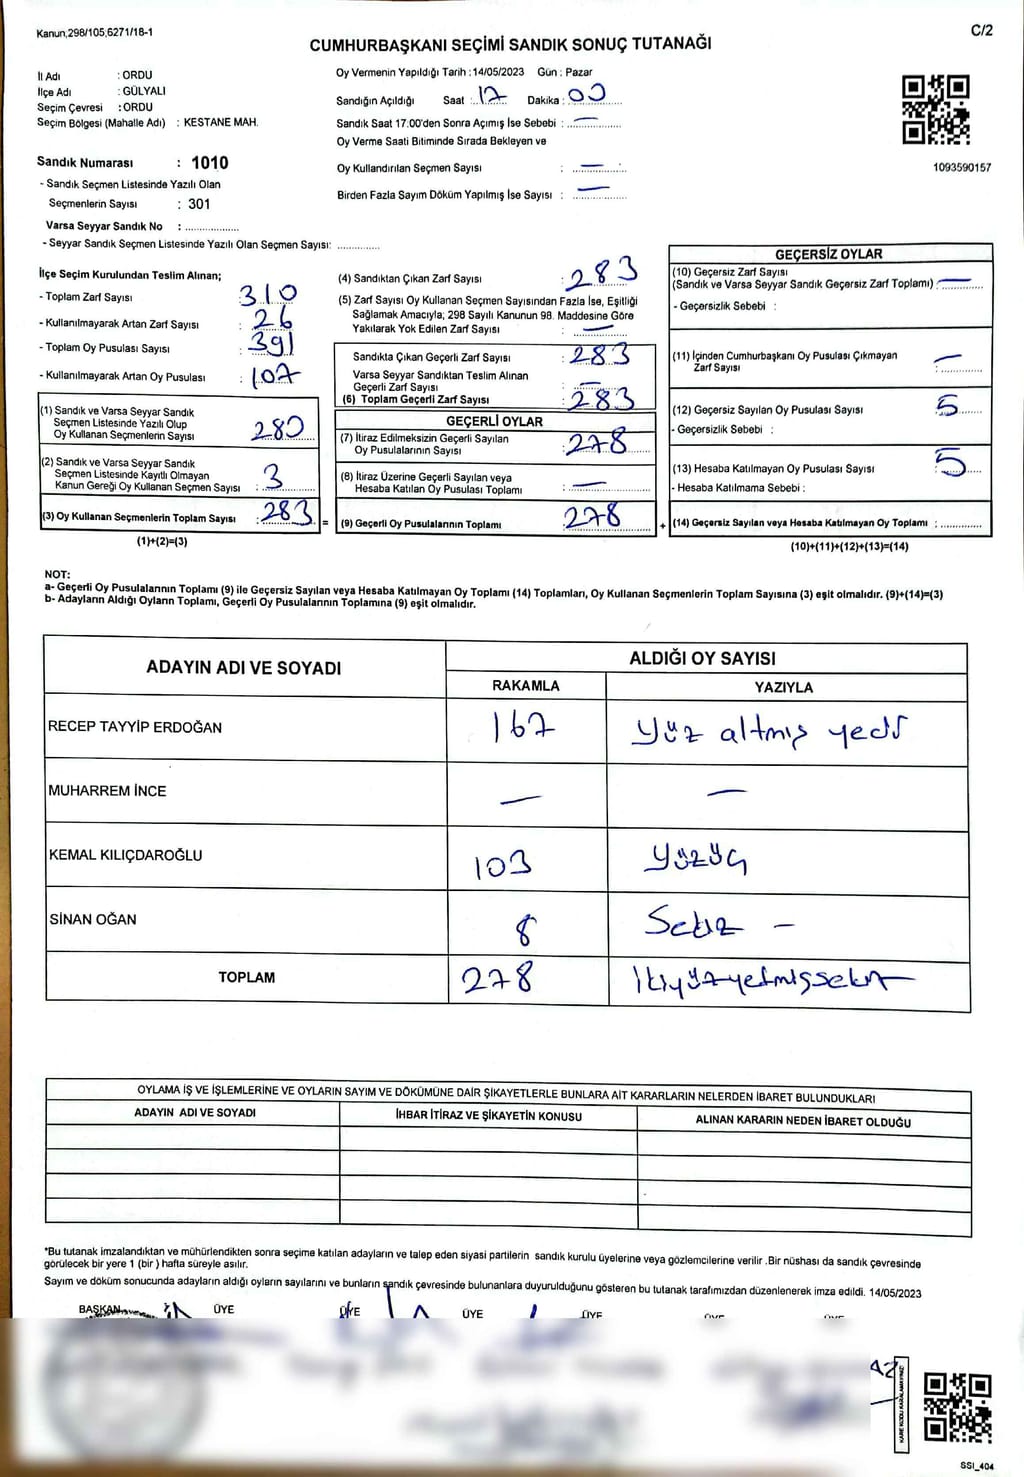 Kanun,298/105,6271/18-1
C/2
CUMHURBAŞKANI SEÇİMİ SANDIK SONUÇ TUTANAĞI
İl Adı : ORDU
İlçe Adı : GÜLYALI
Seçim Çevresi : ORDU
Seçim Bölgesi (Mahalle Adı) : KESTANE MAH.
Sandık Numarası : 1010
- Sandık Seçmen Listesinde Yazılı Olan
Seçmenlerin Sayısı : 301
Varsa Seyyar Sandık No : ................
- Seyyar Sandık Seçmen Listesinde Yazılı Olan Seçmen Sayısı: .............
Oy Vermenin Yapıldığı Tarih :14/05/2023 Gün : Pazar
Sandığın Açıldığı Saat : 17 Dakika : 00
Sandık Saat 17.00'den Sonra Açımış İse Sebebi : —
Oy Verme Saati Bitiminde Sırada Bekleyen ve
Oy Kullandırılan Seçmen Sayısı : —
Birden Fazla Sayım Döküm Yapılmış İse Sayısı : —
1093590157
İlçe Seçim Kurulundan Teslim Alınan;
- Toplam Zarf Sayısı : 310
- Kullanılmayarak Artan Zarf Sayısı : 26
- Toplam Oy Pusulası Sayısı : 391
- Kullanılmayarak Artan Oy Pusulası : 107
(1) Sandık ve Varsa Seyyar Sandık
Seçmen Listesinde Yazılı Olup
Oy Kullanan Seçmenlerin Sayısı 280
(2) Sandık ve Varsa Seyyar Sandık
Seçmen Listesinde Kayıtlı Olmayan
Kanun Gereği Oy Kullanan Seçmen Sayısı : 3
(3) Oy Kullanan Seçmenlerin Toplam Sayısı : 283 =
(1)+(2)=(3)
(4) Sandıktan Çıkan Zarf Sayısı : 283
(5) Zarf Sayısı Oy Kullanan Seçmen Sayısından Fazla İse, Eşitliği
Sağlamak Amacıyla; 298 Sayılı Kanunun 98. Maddesine Göre
Yakılarak Yok Edilen Zarf Sayısı : —
Sandıkta Çıkan Geçerli Zarf Sayısı : 283
Varsa Seyyar Sandıktan Teslim Alınan
Geçerli Zarf Sayısı : —
(6) Toplam Geçerli Zarf Sayısı : 283
GEÇERLİ OYLAR
(7) İtiraz Edilmeksizin Geçerli Sayılan
Oy Pusulalarının Sayısı : 278
(8) İtiraz Üzerine Geçerli Sayılan veya
Hesaba Katılan Oy Pusulası Toplamı : —
(9) Geçerli Oy Pusulalarının Toplamı 278 +
GEÇERSİZ OYLAR
(10) Geçersiz Zarf Sayısı
(Sandık ve Varsa Seyyar Sandık Geçersiz Zarf Toplamı) : —
- Geçersizlik Sebebi :
(11) İçinden Cumhurbaşkanı Oy Pusulası Çıkmayan
Zarf Sayısı : —
(12) Geçersiz Sayılan Oy Pusulası Sayısı : 5
- Geçersizlik Sebebi :
(13) Hesaba Katılmayan Oy Pusulası Sayısı : 5
- Hesaba Katılmama Sebebi :
(14) Geçersiz Sayılan veya Hesaba Katılmayan Oy Toplamı : ............
(10)+(11)+(12)+(13)=(14)
NOT:
a- Geçerli Oy Pusulalarının Toplamı (9) ile Geçersiz Sayılan veya Hesaba Katılmayan Oy Toplamı (14) Toplamları, Oy Kullanan Seçmenlerin Toplam Sayısına (3) eşit olmalıdır. (9)+(14)=(3)
b- Adayların Aldığı Oyların Toplamı, Geçerli Oy Pusulalarının Toplamına (9) eşit olmalıdır.
ADAYIN ADI VE SOYADI ALDIĞI OY SAYISI
RAKAMLA YAZIYLA
RECEP TAYYİP ERDOĞAN 167 Yüz altmış yedi
MUHARREM İNCE — —
KEMAL KILIÇDAROĞLU 103 Yüzüç
SİNAN OĞAN 8 Sekiz —
TOPLAM 278 İkiyüzyetmişsekiz
OYLAMA İŞ VE İŞLEMLERİNE VE OYLARIN SAYIM VE DÖKÜMÜNE DAİR ŞİKAYETLERLE BUNLARA AİT KARARLARIN NELERDEN İBARET BULUNDUKLARI
ADAYIN ADI VE SOYADI İHBAR İTİRAZ VE ŞİKAYETİN KONUSU ALINAN KARARIN NEDEN İBARET OLDUĞU
*Bu tutanak imzalandıktan ve mühürlendikten sonra seçime katılan adayların ve talep eden siyasi partilerin sandık kurulu üyelerine veya gözlemcilerine verilir .Bir nüshası da sandık çevresinde
görülecek bir yere 1 (bir ) hafta süreyle asılır.
Sayım ve döküm sonucunda adayların aldığı oyların sayılarını ve bunların sandık çevresinde bulunanlara duyurulduğunu gösteren bu tutanak tarafımızdan düzenlenerek imza edildi. 14/05/2023
BAŞKAN ÜYE ÜYE ÜYE ÜYE ÜYE ÜYE
KARE KODU KARALAMAYINIZ!
SSI_404